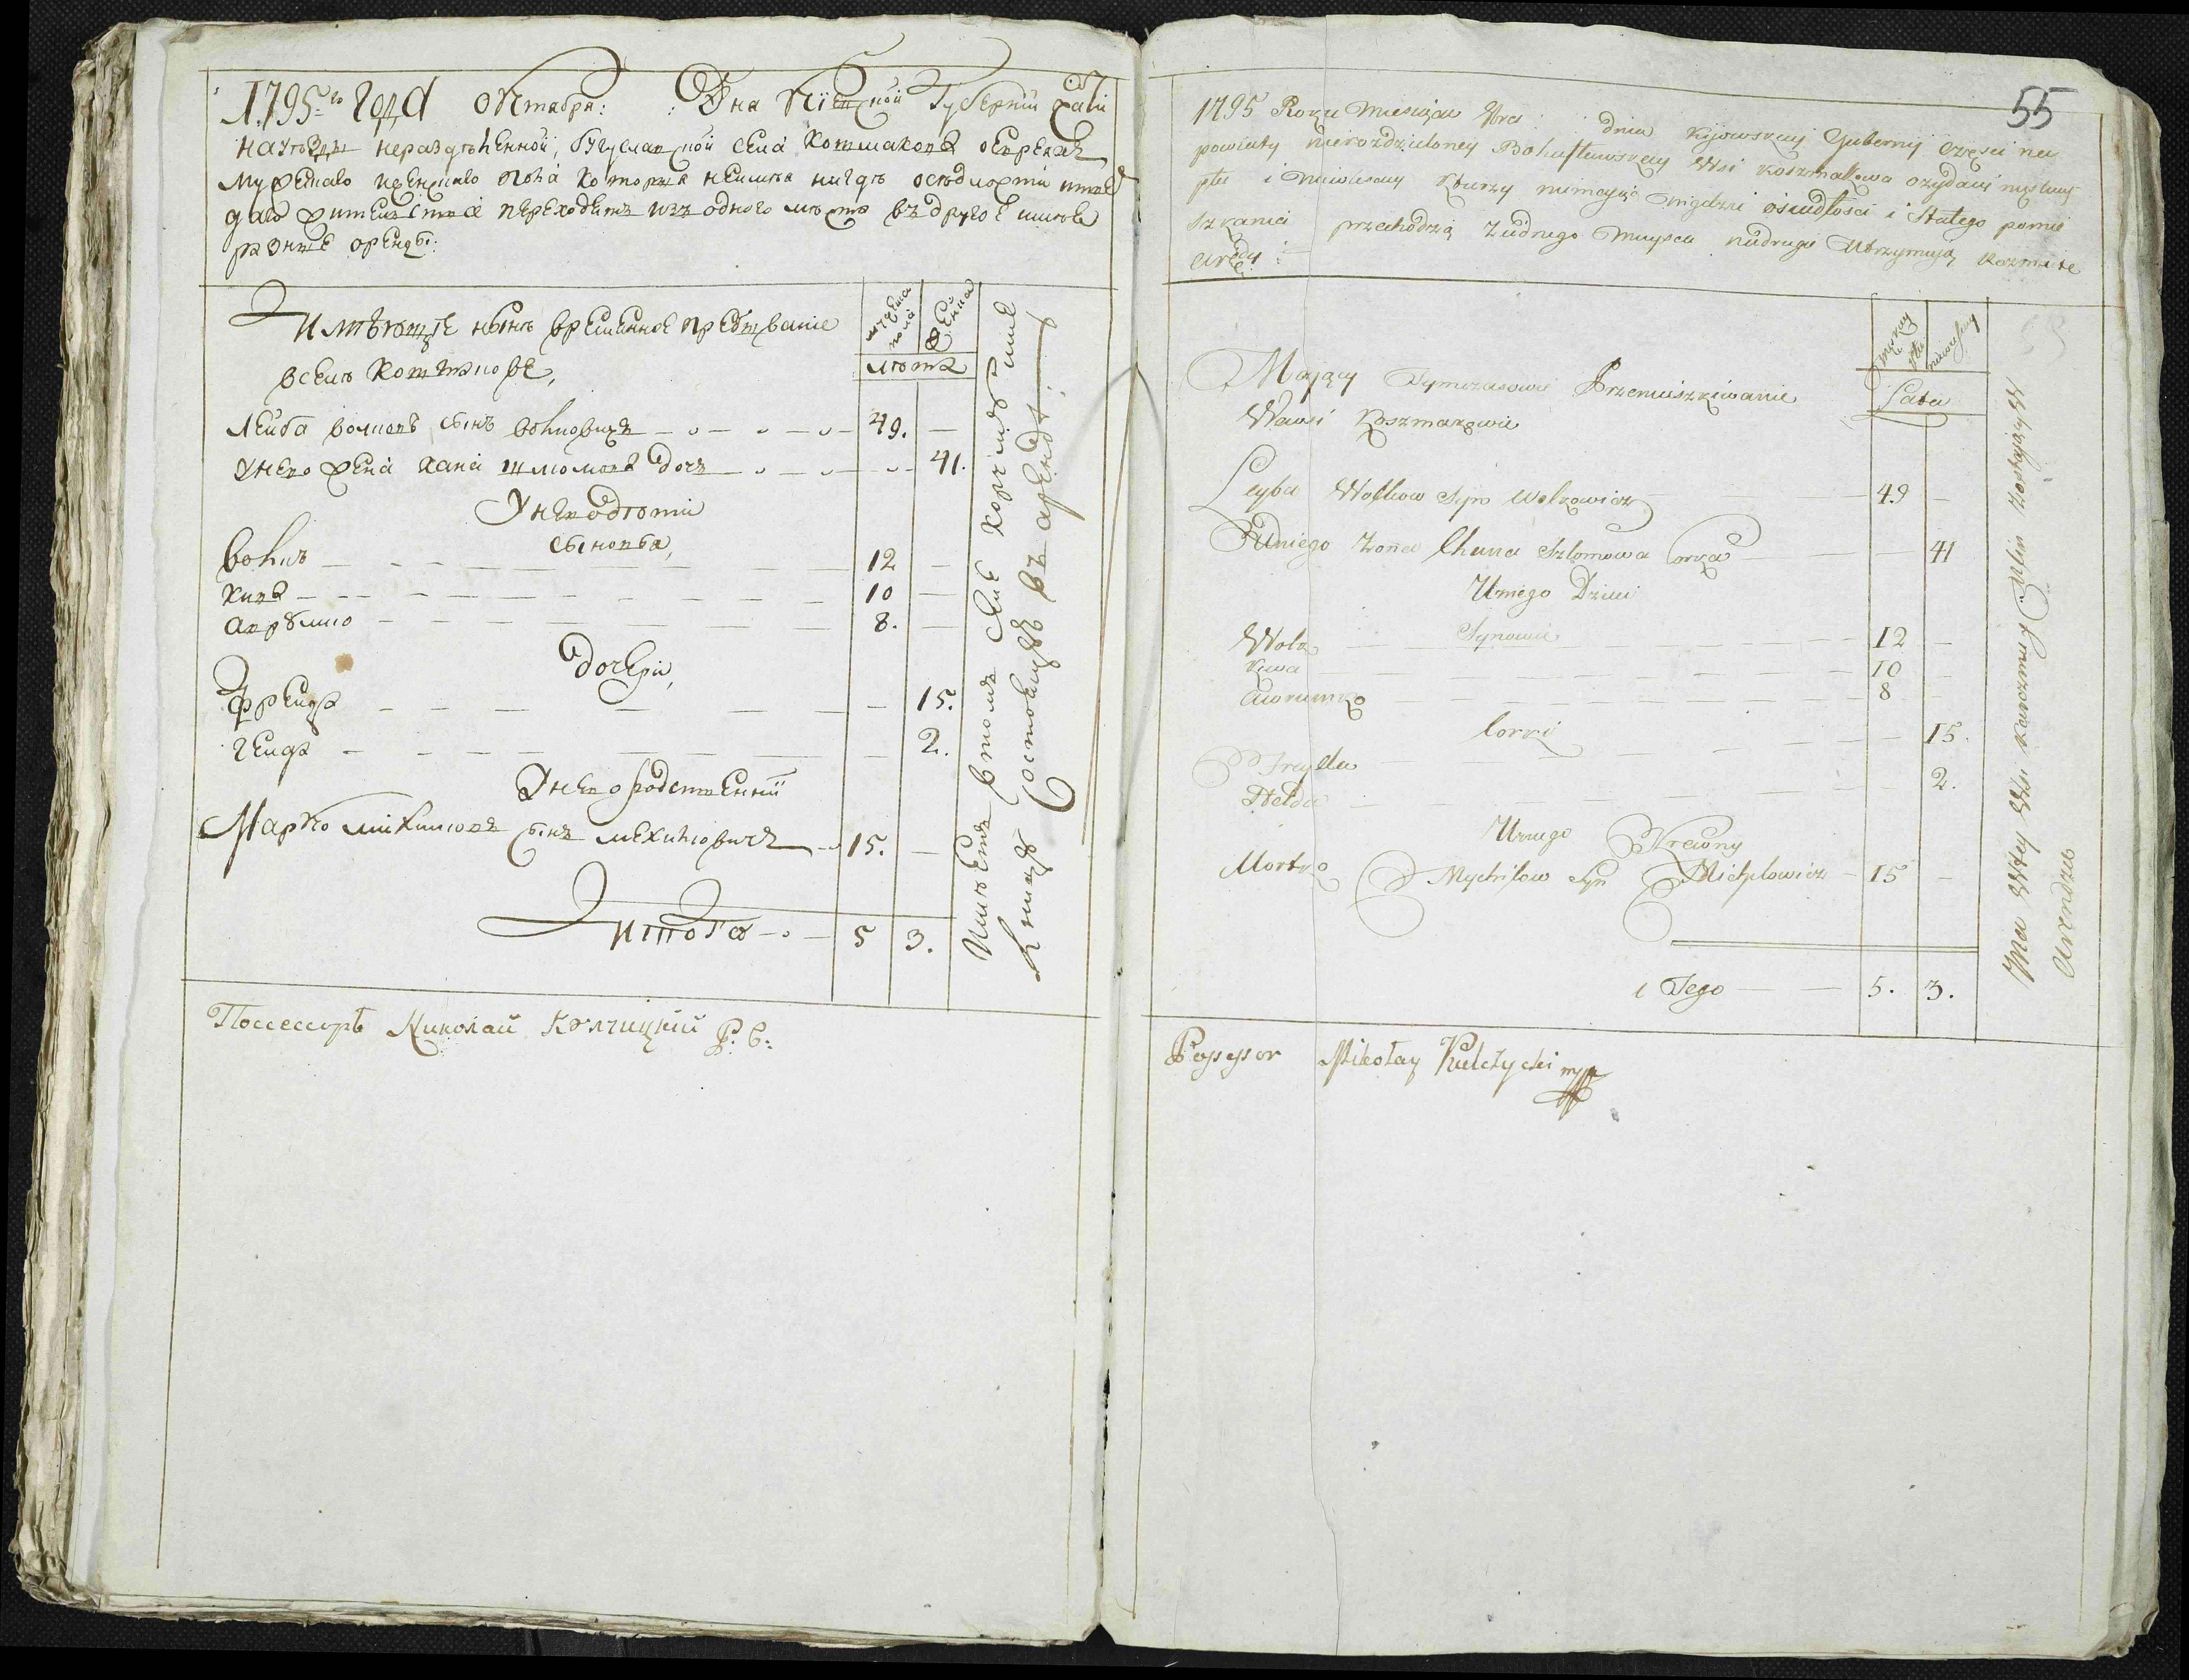 1795го года октабря: Дня Киевской Губерніи части
на уезды неразделенной, Богуславской села Кошмакова о евреахъ
мужескаго и женскаго пола которыя неимея нигде оседлости
жителства переходятъ изъ одного места въ другое имеютъ
разные оренды:
Имеющіе ныне временное пребываніе
в селе Кошмакове,
мужеска пола
женска
лета
Лейба волковъ сынъ волковичъ 49. —
у него жена хана шлюмова дочь — 41.
У него дети
сыновья,
волко 12 —
кива 10 —
аврумко 8. —
дочери,
Фрейда — 15.
гейда — 2.
У него родственный
Марко михилювъ сынъ мехилювичъ 15. —
Итого 5 3.
Имеетъ в томъ селе корчму
Состоящую въ арендѣ
Поссессоръ Николай Кулчицкий Р. С:
55
1795 Roku Miesiąca Xbra : : dnia Kijowskiey Gubernij części na
powiaty nierozdzieloney Bohusławskiey Wsi Koszmakowa o żydach męskiey
płci i niewieściey którzy niemaiąc nigdzie osiadłości i Stałego pomie
szkania przechodzą z iednego mieysca na drugie Utrzymują Rozmaite
arędy :
Męzkiey płci
niewieściey
Lata
Maiący Tymczasowie Przemieszkiwanie
We wsi Koszmakowie
Leyba Wolkow Syn Wolkowicz 49 —
U niego żona Chana Szlomowa Corka — 41
U niego Dzieci
Synowie
Wolko 12 —
Kiwa 10 —
Awrumko 8 —
Corki
Freyda — 15.
Heida — 2.
U niego Krewny
Mortko Mychilow Syn Michylowicz 15 —
i Tego 5. 3.
Ma W tey Wsi Karczmę Zostaiący W
Arendzie
Possessor Mikołay Kulczycki mpp